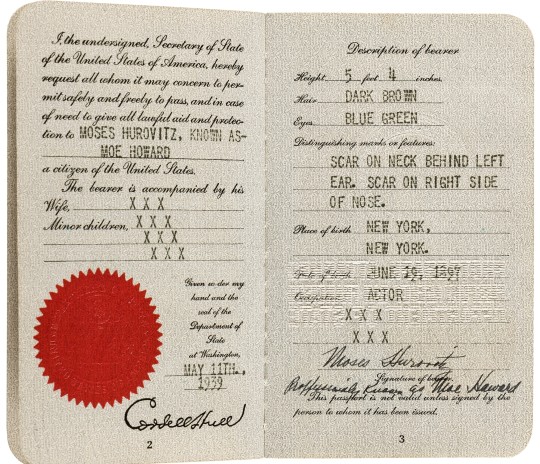 I, the undersigned, Secretary of State
of the United States of America, hereby
request all whom it may concern to per-
mit safely and freely to pass, and in case
of need to give all lawful aid and protec-
tion to MOSES HUROVITZ, KNOWN AS-
MOE HOWARD
a citizen of the United States.
The bearer is accompanied by his
Wife, X X X
Minor children, X X X
X X X
X X X
Given under my
hand and the
seal of the
Department of
State
at Washington,
MAY 11TH.,
1939
Cordell Hull
2
Description of bearer
Height 5 feet 4 inches.
Hair DARK BROWN
Eyes BLUE GREEN
Distinguishing marks or features:
SCAR ON NECK BEHIND LEFT
EAR. SCAR ON RIGHT SIDE
OF NOSE.
Place of birth NEW YORK,
NEW YORK.
Date of birth JUNE 19, 1897
Occupation ACTOR
X X X
X X X
Moses Hurovitz
Signature of bearer.
Proffessionaly Known as Moe Howard
This passport is not valid unless signed by the
person to whom it has been issued.
3